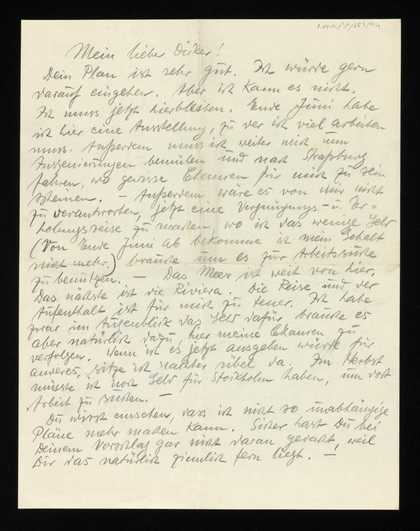 Mein lieber Dicker!
Dein Plan ist sehr gut. Ich würde gern
darauf eingehen. Aber ich kann es nicht.
Ich muss jetzt hierbleiben. Ende Juni habe
ich hier eine Ausstellung, zu der ich viel arbeiten
muss. Ausserdem muss ich weiter mich um
Inszenierungen bemühen und nach Straßburg
fahren, wo gewisse Chancen für mich zu sein
scheinen. — Ausserdem wäre es von mir nicht
zu verantworten, jetzt eine Vergnügungs- u. Er-
holungsreise zu machen, wo ich das wenige Geld
(Von Ende Juni ab bekomme ich mein Gehalt
nicht mehr.) brauche um es zur Arbeitssuche
zu benützen. — Das Meer ist weit von hier.
Das nächste ist die Riviera. Die Reise und der
Aufenthalt ist für mich zu teuer. Ich habe
zwar im Augenblick das Geld dafür, brauche es
aber natürlich dazu, hier meine Chancen zu
verfolgen. Wenn ich es jetzt ausgeben würde für
anderes, sitze ich nachher übel da. Im Herbst
müsste ich noch Geld für Stockholm haben, um dort
Arbeit zu suchen. —
Du wirst einsehen, dass ich nicht so unabhängige
Pläne mehr machen kann. Sicher hast Du bei
Deinem Vorschlag gar nicht daran gedacht, weil
Dir das natürlich ziemlich fern liegt. —